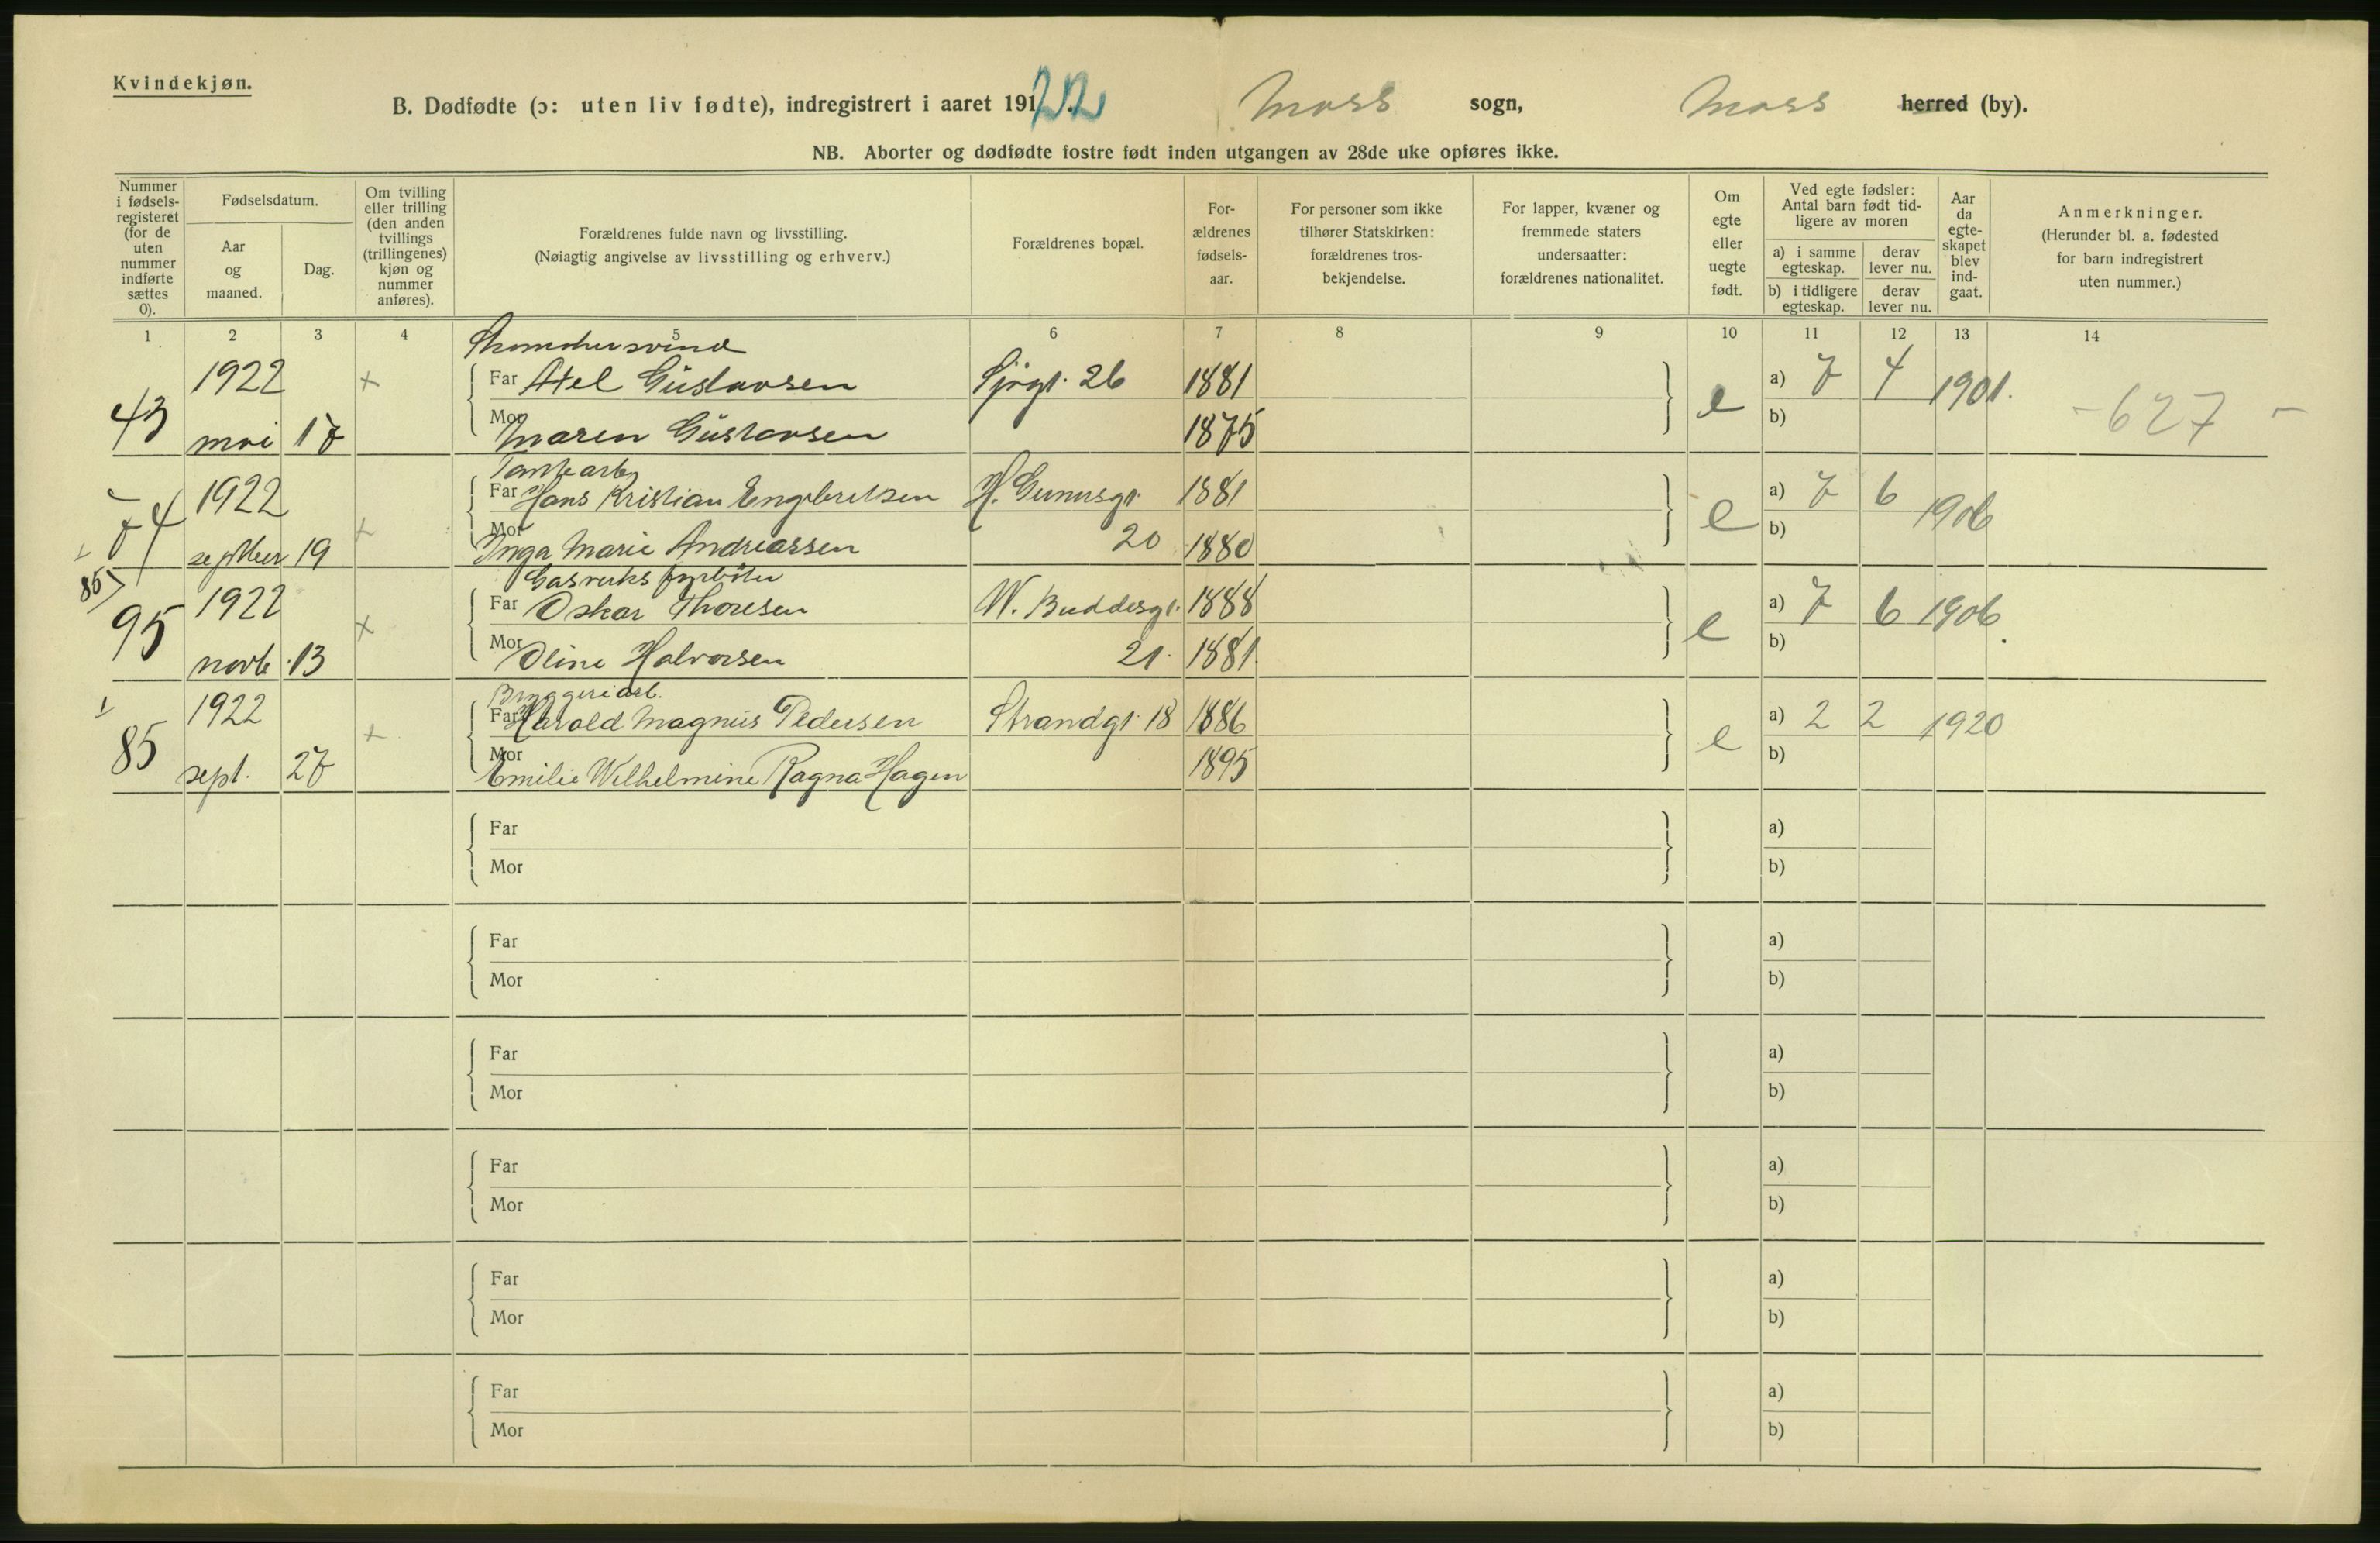 Kvindekjøn.
B. Dødfødte (ɔ: uten liv fødte), indregistrert i aaret 1922. Moss sogn, Moss herred (by).
NB. Aborter og dødfødte fostre født inden utgangen av 28de uke opføres ikke.
Nummer i fødsels-registeret (for de uten nummer indførte sættes 0).
Fødselsdatum.
Aar og maaned.
Dag.
Om tvilling eller trilling (den anden tvillings (trillingenes) kjøn og nummer anføres).
Forældrenes fulde navn og livsstilling.
(Nøiagtig angivelse av livsstilling og erhverv.)
Forældrenes bopæl.
For-ældrenes fødsels-aar.
For personer som ikke tilhører Statskirken: forældrenes tros-bekjendelse.
For lapper, kvæner og fremmede staters undersaatter: forældrenes nationalitet.
Om egte eller uegte født.
Ved egte fødsler: Antal barn født tid-ligere av moren
a) i samme egteskap.
derav lever nu.
b) i tidligere egteskap.
derav lever nu.
Aar da egte-skapet blev ind-gaat.
Anmerkninger.
(Herunder bl. a. fødested for barn indregistrert uten nummer.)
1 2 3 4 5 6 7 8 9 10 11 12 13 14
1922 + Far Axel Gustavsen Sjøgt. 26 1881 e a) 7 4 1901.
43 mai 17 Mor Maren Gustavsen 1875 b) - 627 -
Far Hans Kristian Engebretsen H. Gunnersgt. 1881 e a) 7 6 1906
74 1922 + septber 19 Mor Inga Marie Andreassen 20 1880 b)
85
Gasverks fyrbøter
95 1922 + Far Oskar Thoresen W. Buddesgt. 1888 e a) 7 6 1906.
novb. 13 Mor Oline Halvorsen 21. 1881. b)
Bryggeriarb.
1922 + Far Harald Magnus Pedersen Strandgt. 18 1886 e a) 2 2 1920
85 sept. 27 Mor Emilie Wilhelmine Ragna Hagen 1895 b)
Far a)
Mor b)
Far a)
Mor b)
Far a)
Mor b)
Far a)
Mor b)
Far a)
Mor b)
Far a)
Mor b)